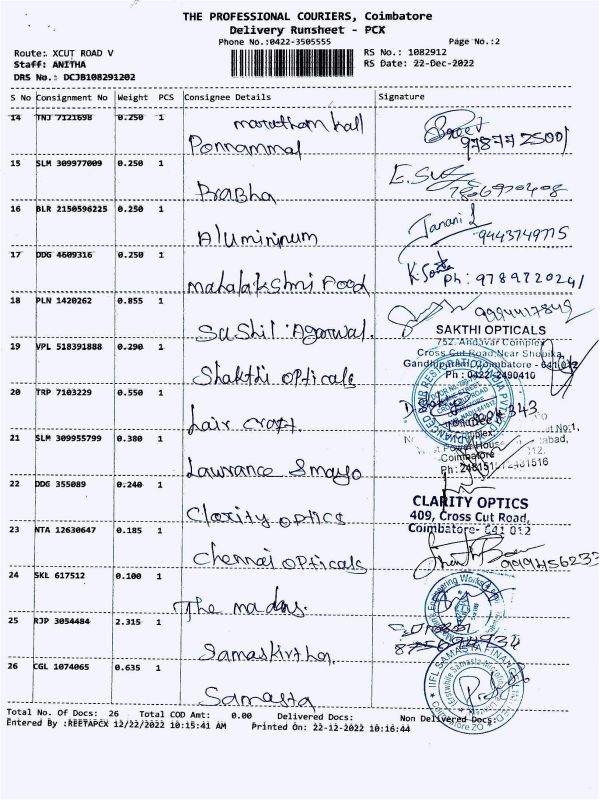 THE PROFESSIONAL COURIERS, Coimbatore
Delivery Runsheet - PCX
Phone No.:0422-3505555 Page No.:2
Route: XCUT ROAD V RS No.: 1082912
Staff: ANITHA RS Date: 22-Dec-2022
DRS No.: DCJB108291202
S No Consignment No Weight PCS Consignee Details Signature
14 TNJ 7121698 0.250 1
Ponnammal 98777 25001
15 SLM 309977009 0.250 1 E.S
Prabha
16 BLR 2150596225 0.250 1 Janani L
Alumininum 9443749715
17 DDG 4609316 0.250 1
Mahalakshmi Food Ph: 9789720241
18 PLN 1420262 0.855 1 9994417849
Sashil Agarwal. SAKTHI OPTICALS
752. Andavar Complex
19 VPL 518391888 0.290 1 Cross Cut Road, Near Shobika
Gandhipuram, Coimbatore - 641 012
Shakthi Opticals Ph : 0422-2490410
20 TRP 7103229 0.550 1
Lair Craft.
21 SLM 309955799 0.380 1
Coimbatore
Lawrance Smayo Ph: 2481516
22 DDG 355089 0.240 1 CLARITY OPTICS
Clarity optics 409, Cross Cut Road,
23 NTA 12630647 0.185 1 Coimbatore- 641 012
Chennai Opticals 999456233
24 SKL 617512 0.100 1
The madras.
25 RJP 3054484 2.315 1
Samaskirtha.
26 CGL 1074065 0.635 1
Samasta
Total No. Of Docs: 26 Total COD Amt: 0.00 Delivered Docs: Non Delivered Docs:
Entered By :REETAPCX 12/22/2022 10:15:41 AM Printed On: 22-12-2022 10:16:44